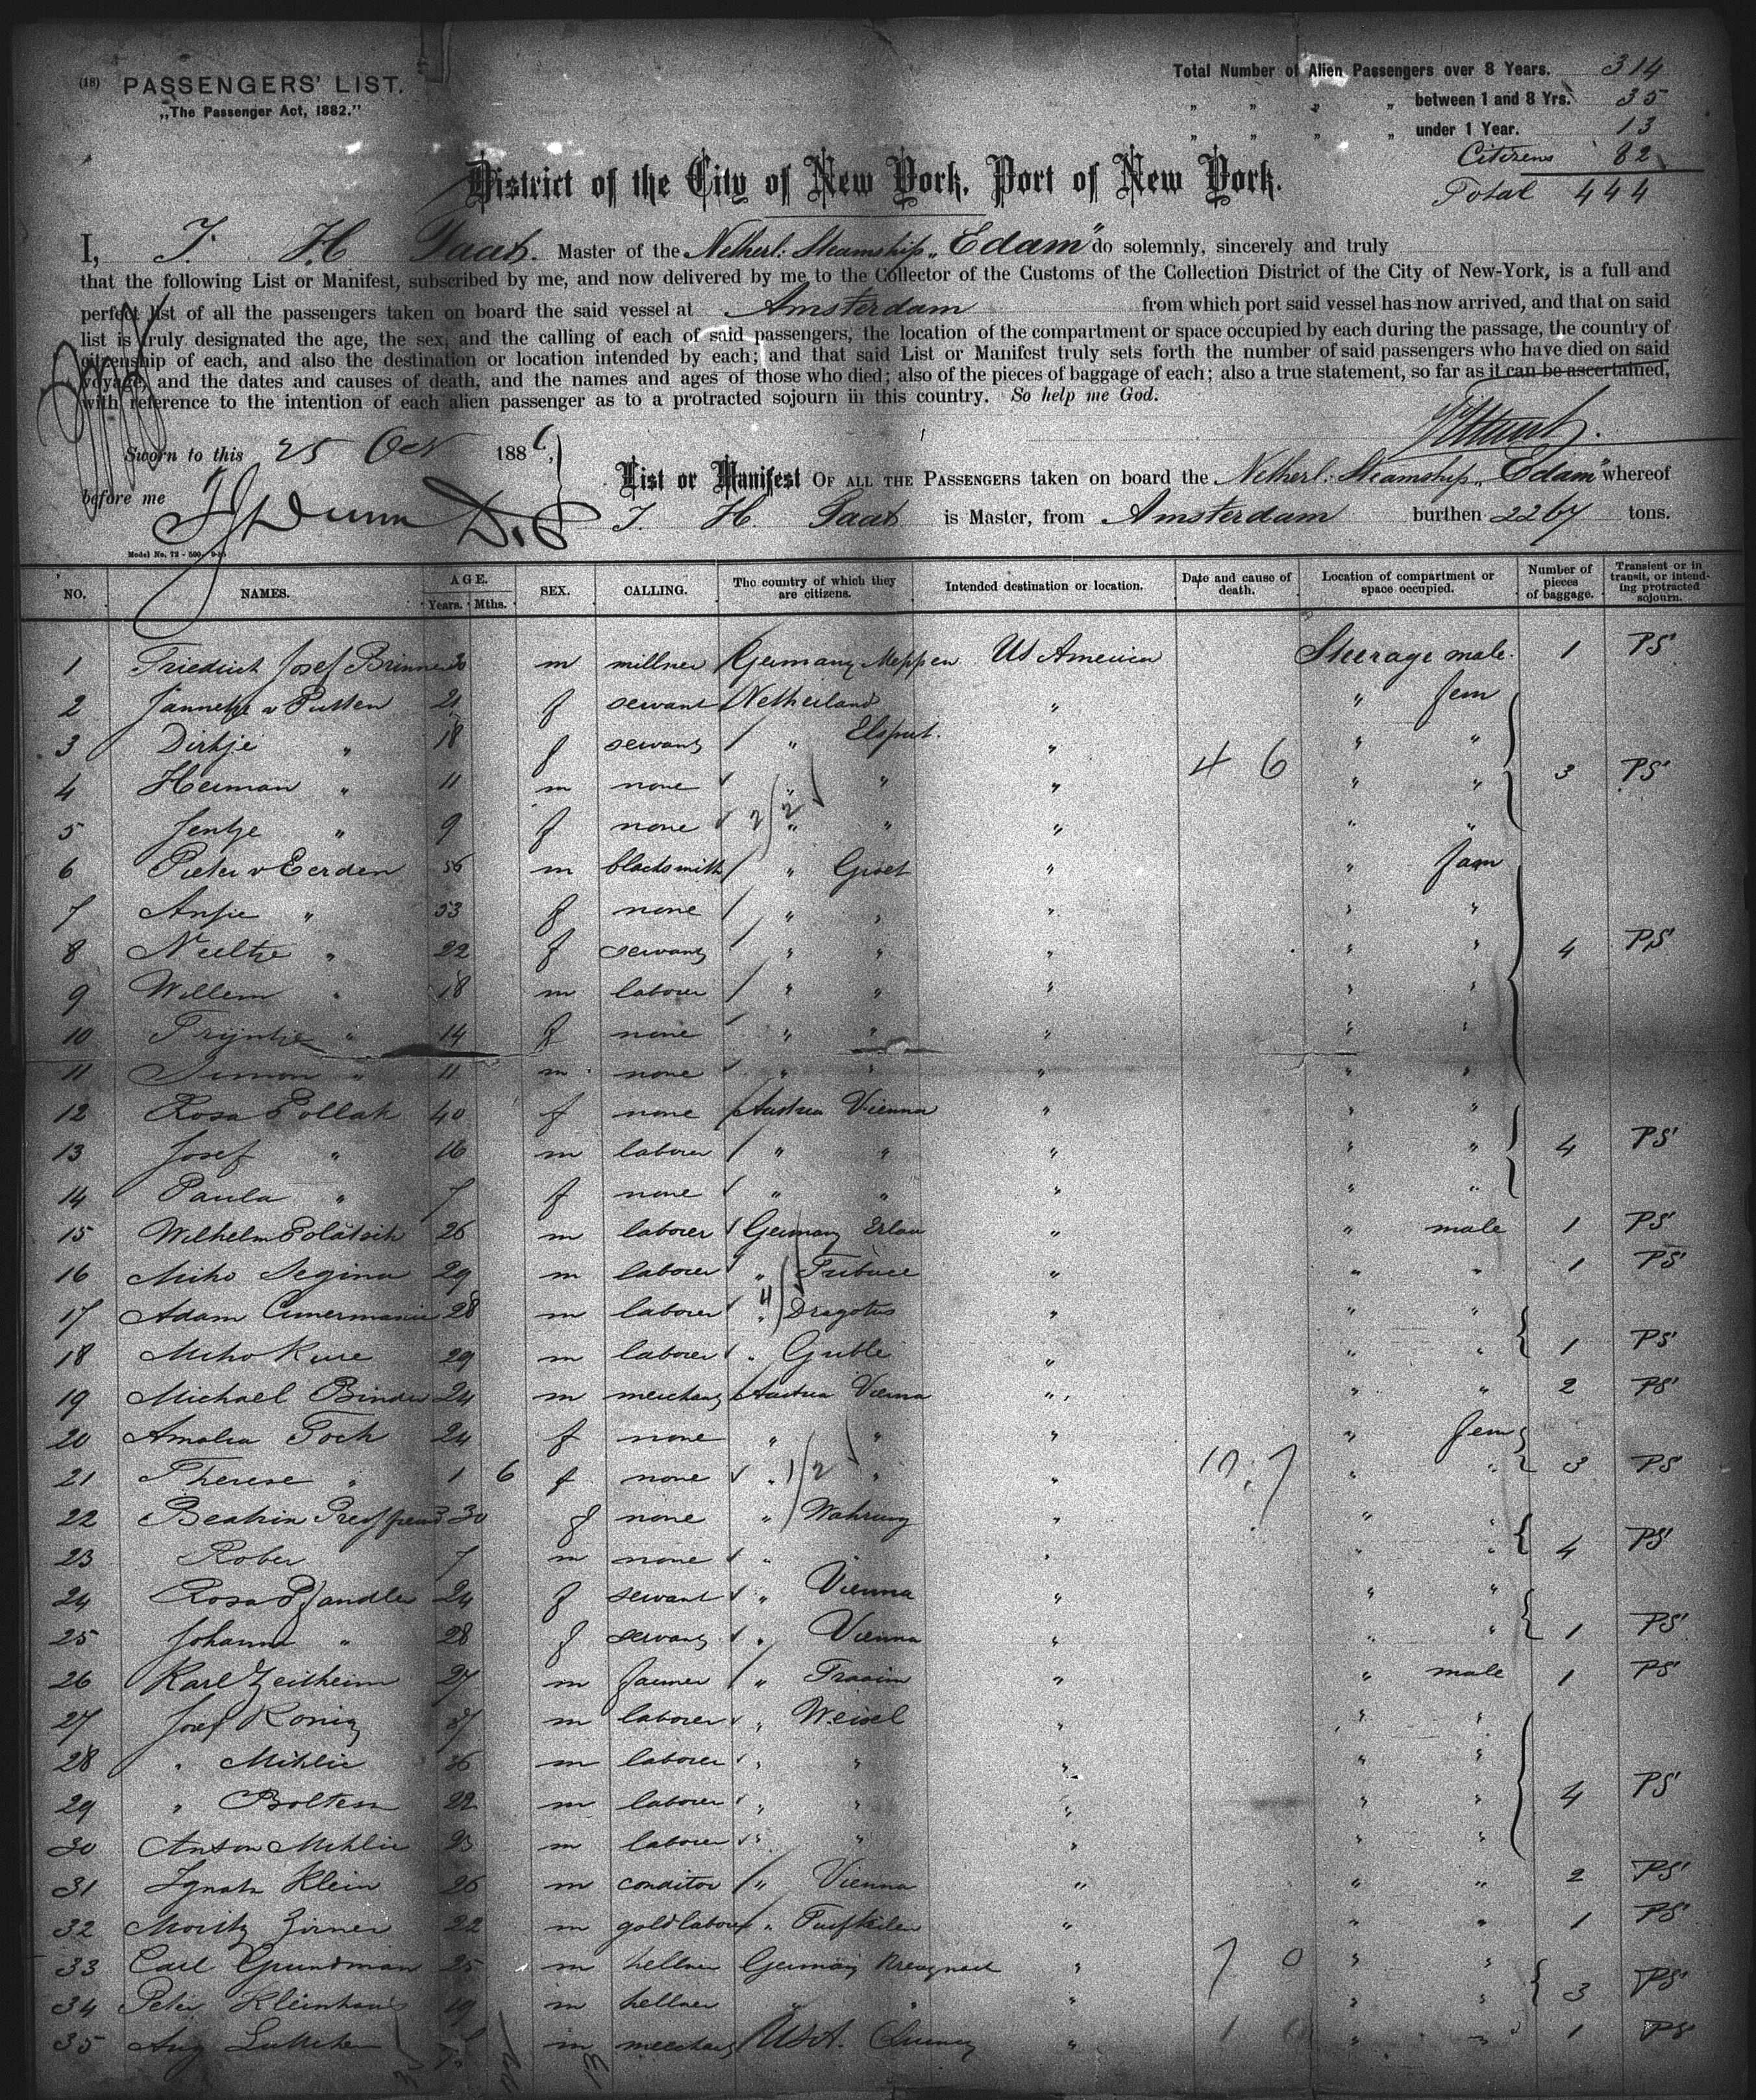 (18) PASSENGERS' LIST.
„The Passenger Act, 1882."
Total Number of Alien Passengers over 8 Years. 314
„ „ „ „ between 1 and 8 Yrs. 35
„ „ „ „ under 1 Year. 13
Citizens 82
Total 444
District of the City of New York, Port of New York.
I, J. H Taat. Master of the Netherl: Steamship „Edam" do solemnly, sincerely and truly
that the following List or Manifest, subscribed by me, and now delivered by me to the Collector of the Customs of the Collection District of the City of New-York, is a full and
perfect list of all the passengers taken on board the said vessel at Amsterdam from which port said vessel has now arrived, and that on said
list is truly designated the age, the sex, and the calling of each of said passengers, the location of the compartment or space occupied by each during the passage, the country of
citizenship of each, and also the destination or location intended by each; and that said List or Manifest truly sets forth the number of said passengers who have died on said
voyage, and the dates and causes of death, and the names and ages of those who died; also of the pieces of baggage of each; also a true statement, so far as it can be ascertained,
with reference to the intention of each alien passenger as to a protracted sojourn in this country. So help me God.
Sworn to this 25 Oct 1886,
before me
List or Manifest OF ALL THE PASSENGERS taken on board the Netherl: Steamship „Edam" whereof
J. H Taat is Master, from Amsterdam burthen 2267 tons.
Model No. 72 - 500
NO. NAMES. AGE. Years. Mths. SEX. CALLING. The country of which they are citizens. Intended destination or location. Date and cause of death. Location of compartment or space occupied. Number of pieces of baggage. Transient or in transit, or intending protracted sojourn.
1 Friedrich Josef Brinner 30 m millner Germany Meppen US America Steerage male. 1 PS
2 Jannetje v Putten 21 f servant Netherland „ „ fem
3 Dirkje „ 18 f servant „ Elsput. „ „ „
4 Herman „ 11 m none „ „ „ „ „ 3 PS
5 Jentje „ 9 f none „ „ „ „ „
6 Pieter v Eerden 56 m blacksmith „ Groet „ „ fam
7 Ansje „ 53 f none „ „ „ „ „
8 Neeltje „ 22 f servant „ „ „ „ „ 4 PS
9 Willem „ 18 m laborer „ „ „ „ „
10 Tryntje „ 14 f none „ „ „ „ „
11 Simon „ 11 m none „ „ „ „ „
12 Rosa Pollak 40 f none Austria Vienna „ „ „
13 Josef „ 16 m laborer „ „ „ „ „ 4 PS
14 Paula „ 7 f none „ „ „ „ „
15 Wilhelm Polatsik 26 m laborer Germany Erlau „ „ male 1 PS
16 Miho Segina 29 m laborer „ Tribuce „ „ „ 1 PS
17 Adam 28 m laborer „ Dragotus „ „ „
18 Miho Kure 29 m laborer „ Guble „ „ „ 1 PS
19 Michael Binder 24 m merchant Austria Vienna „ „ „ 2 PS
20 Amalia Toch 24 f none „ „ „ „ fem
21 Therese „ 1 6 f none „ „ „ „ „ 3 PS
22 Beatrin 30 f none „ Wahrung „ „ „
23 Rober 7 m none „ „ „ „ 4 PS
24 Rosa Pfandler 24 f servant „ Vienna „ „ „
25 Johanna „ 28 f servant „ Vienna „ „ „ 1 PS
26 Karl Zeitheim 27 m farmer „ Traain „ „ male 1 PS
27 Josef König 37 m laborer „ Weisel „ „ „
28 „ Mihlic 36 m laborer „ „ „ „ „
29 „ Bolten 22 m laborer „ „ „ „ „ 4 PS
30 Anton Mihlic 23 m laborer „ „ „ „ „
31 Ignatz Klein 26 m conditor „ Vienna „ „ „ 2 PS
32 Moritz Zirner 22 m goldlaborer „ „ „ „ 1 PS
33 Carl Grundman 25 m kellner Germany Kreuznach „ „ „
34 Peter Kleinhans 19 m kellner „ „ „ „ „ 3 PS
35 Aug m merchant USA. Quincy „ „ „ 1 PS